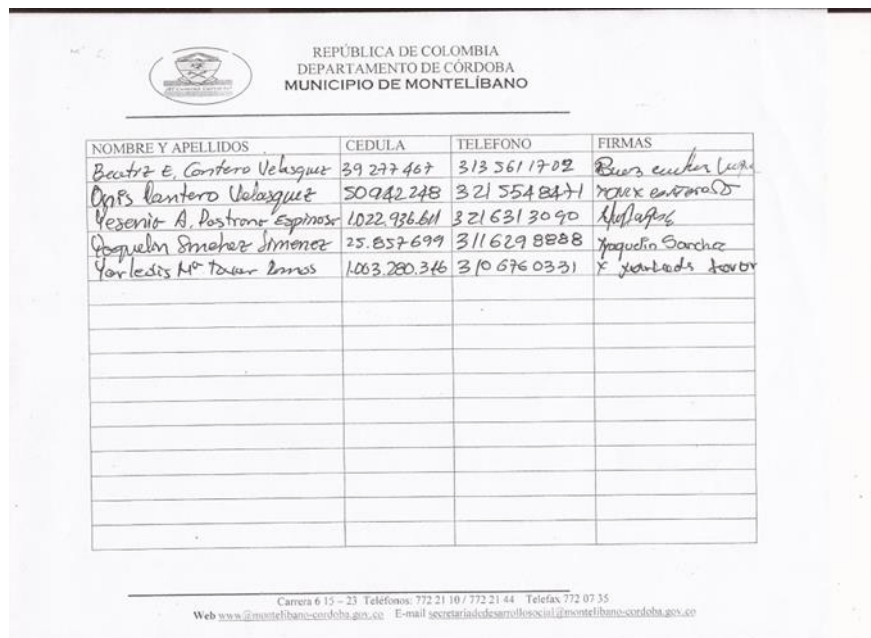 REPÚBLICA DE COLOMBIA
DEPARTAMENTO DE CÓRDOBA
MUNICIPIO DE MONTELÍBANO
NOMBRE Y APELLIDOS CEDULA TELEFONO FIRMAS
Beatriz E, Contero Velasquez 39 277 467 313 561 1702
Onis Cantero Velasquez 50942248 321 5548471
Yesenia A. Pastrana Espinosa 1.022.936.611 321 631 3090
Yoquelin Snchez Jimenez 25.857699 311629 8888 Yoquelin Sanchez
Yorledis Mª Tovar Ramos 1.063.280.346 310 676 0331 x Tovar
Carrera 6 15 – 23 Teléfonos: 772 21 10 / 772 21 44 Telefax 772 07 35
Web www@montelibano-cordoba.gov.co E-mail secretariadedesarrollosocial@montelibano-cordoba.gov.co